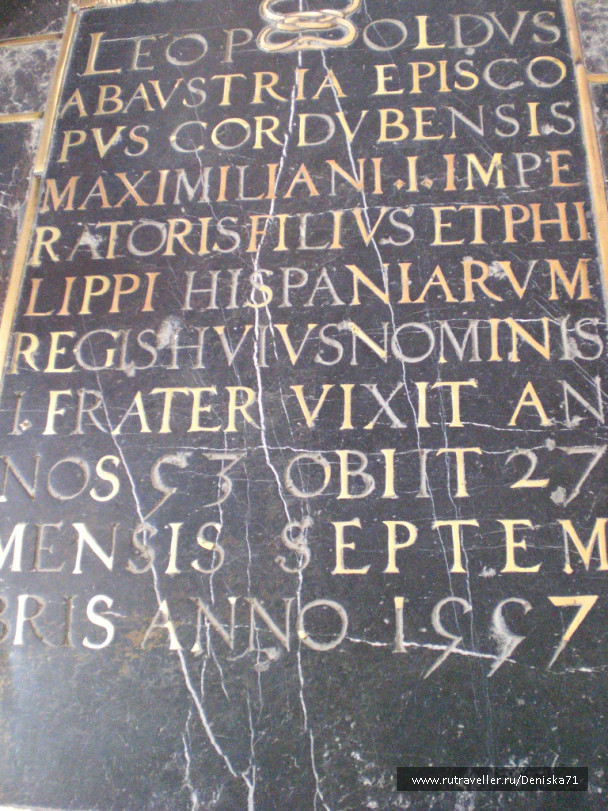 LEOPOLDVS
ABAVSTRIA EPISCO
PVS CORDVBENSIS
MAXIMILIANI·I·IMPE
RATORISFILIVS ETPHI
LIPPI HISPANIARVM
REGISHVIVSNOMINIS
I·FRATER VIXIT AN
NOS 53 OBIIT 27
MENSIS SEPTEM
BRIS ANNO 1557
www.rutraveller.ru/Deniska71